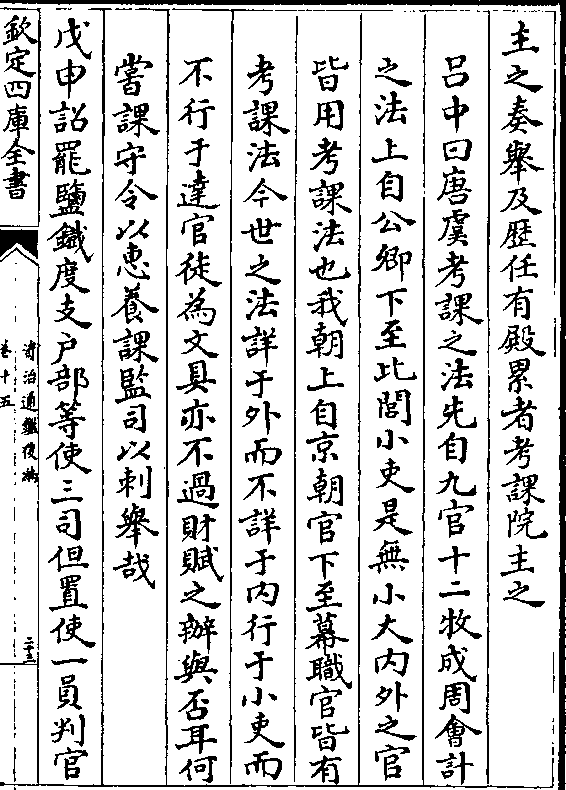 主之奏舉及歴任有殿累者考課院主之
吕中曰唐虞考課之法先自九官十二牧成周會計
之法上自公卿下至比閭小吏是無小大内外之官
皆用考課法也我朝上自京朝官下至幕職官皆有
考課法今世之法詳于外而不詳于内行于小吏而
不行于達官徒為文具亦不過財賦之辦與否耳何
嘗課守令以惠養課監司以刺舉哉
戊申詔罷鹽鐵度支户部等使三司但置使一員判官
欽定四庫全書
資治通鑑後編
卷十五
二十三